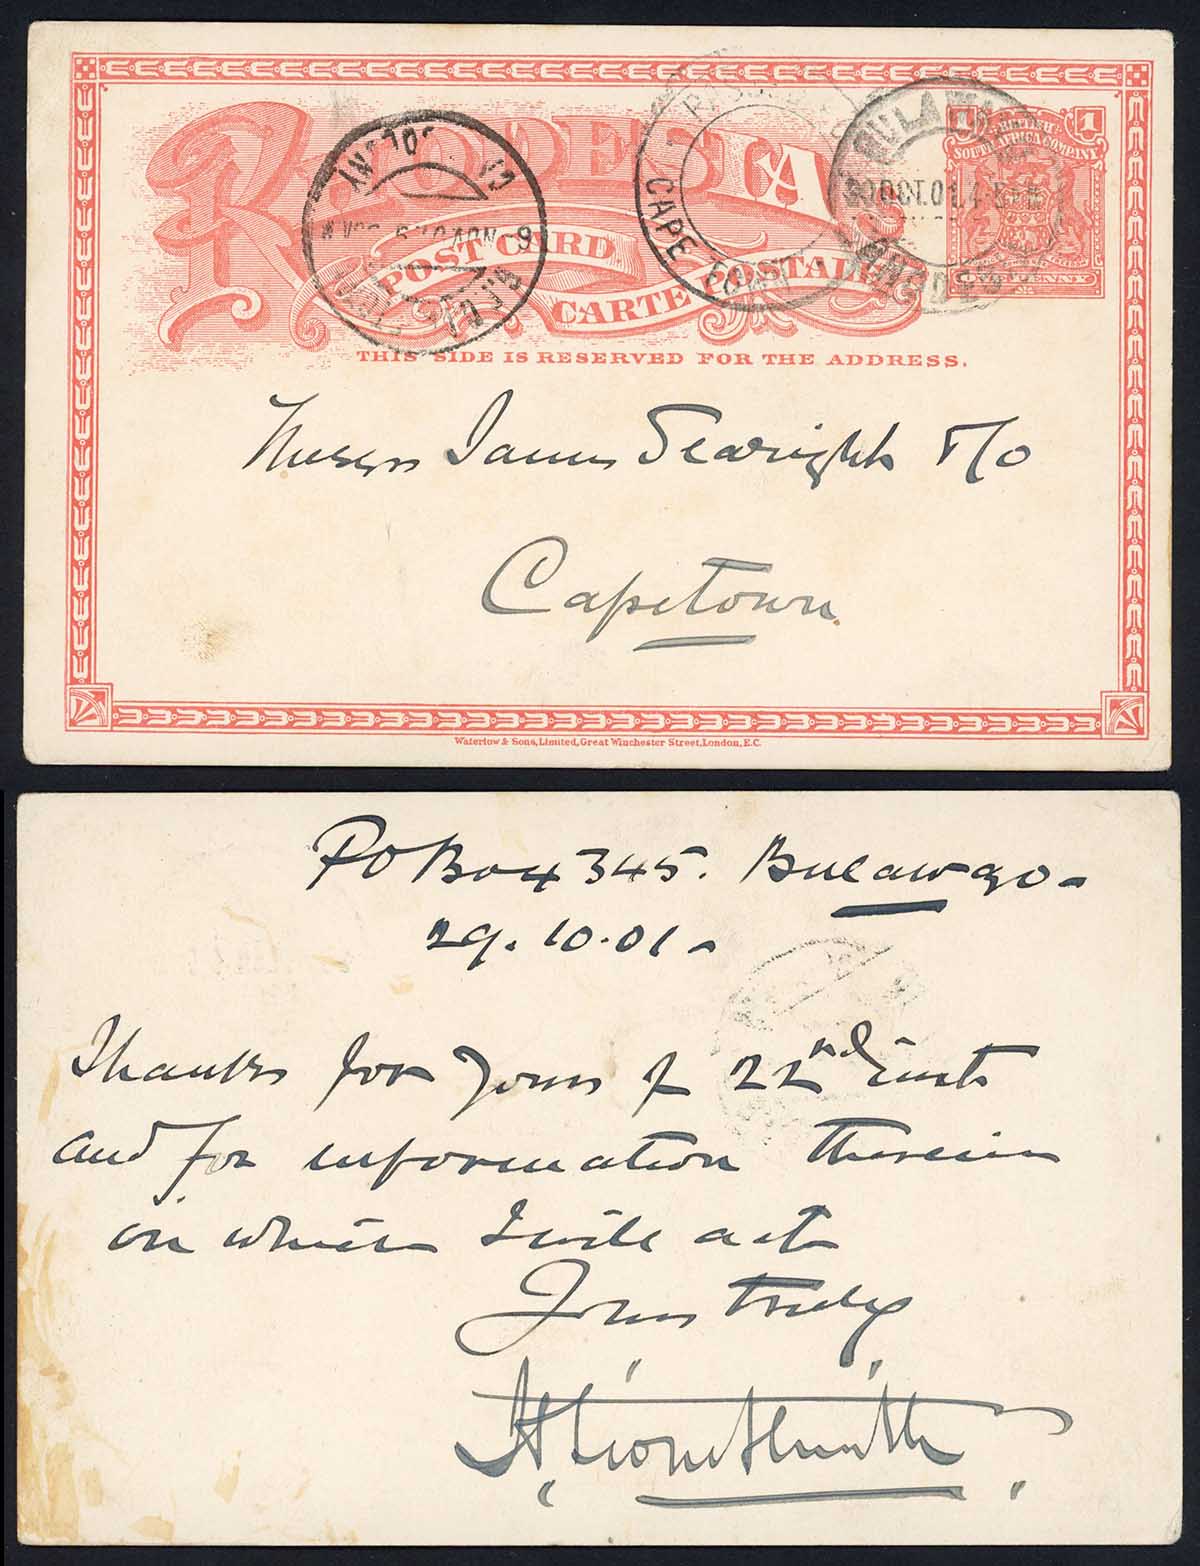 RHODESIA
POST CARD
CARTE POSTALE
THIS SIDE IS RESERVED FOR THE ADDRESS.
1 1
BRITISH
SOUTH AFRICA COMPANY
PENNY
BULAWAYO
30 OCT.01.4
RHODESIA
CAPE TOWN
6 NOV 01
Messrs James Searight &/Co
Capetown.
Waterlow & Sons, Limited, Great Winchester Street, London, E.C.
PO Box 345. Bulawayo -
29.10.01 -
Thanks for Yours of 22nd inst
and for information therein
on which I will act
Yours truly